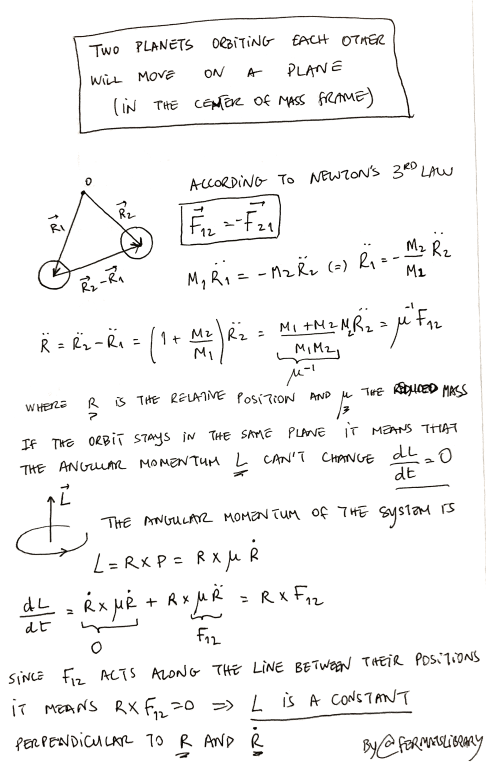 TWO PLANETS ORBITING EACH OTHER
WILL MOVE ON A PLANE
(IN THE CENTER OF MASS FRAME)
O
R⃗1
R⃗2
R⃗2-R⃗1
ACCORDING TO NEWTON'S 3RD LAW
F⃗12 = -F⃗21
M1 R̈1 = -M2 R̈2 (=) R̈1 = - M2/M1 R̈2
R̈ = R̈2 - R̈1 = (1 + M2/M1) R̈2 = (M1+M2)/(M1M2) M2 R̈2 = μ⁻¹ F12
μ⁻¹
WHERE R IS THE RELATIVE POSITION AND μ THE REDUCED MASS
IF THE ORBIT STAYS IN THE SAME PLANE IT MEANS THAT
THE ANGULAR MOMENTUM L CAN'T CHANGE dL/dt = 0
L⃗
THE ANGULAR MOMENTUM OF THE SYSTEM IS
L = R x P = R x μ Ṙ
dL/dt = Ṙ x μṘ + R x μR̈ = R x F12
0 F12
SINCE F12 ACTS ALONG THE LINE BETWEEN THEIR POSITIONS
IT MEANS R x F12 = 0 => L IS A CONSTANT
PERPENDICULAR TO R AND Ṙ
By @FERMATSLIBRARY